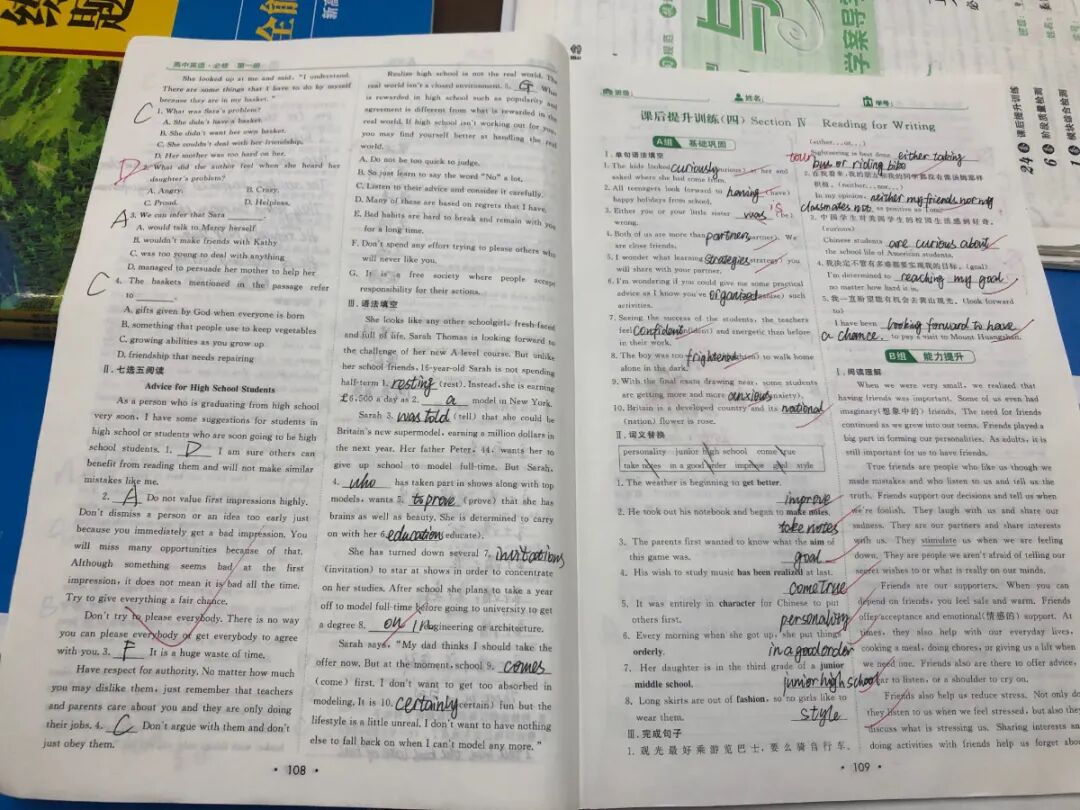 练
题
全能
新高
高中英语·必修 第一册
She looked up at me and said, "I understand.
There are some things that I have to do by myself
because they are in my basket."
C
1. What was Sara's problem?
A. She didn't have a basket.
B. She didn't want her own basket.
C. She couldn't deal with her friendship.
D. Her mother was too hard on her.
D
2. What did the author feel when she heard her
daughter's problem?
A. Angry. B. Crazy.
C. Proud. D. Helpless.
A
3. We can infer that Sara ______.
A. would talk to Mercy herself
B. wouldn't make friends with Kathy
C. was too young to deal with anything
D. managed to persuade her mother to help her
C
4. The baskets mentioned in the passage refer
to ______.
A. gifts given by God when everyone is born
B. something that people use to keep vegetables
C. growing abilities as you grow up
D. friendship that needs repairing
Ⅱ. 七选五阅读
Advice for High School Students
As a person who is graduating from high school
very soon, I have some suggestions for students in
high school or students who are soon going to be high
school students. 1. D I am sure others can
benefit from reading them and will not make similar
mistakes like me.
2. A Do not value first impressions highly.
Don't dismiss a person or an idea too early just
because you immediately get a bad impression. You
will miss many opportunities because of that.
Although something seems bad at the first
impression, it does not mean it is bad all the time.
Try to give everything a fair chance.
Don't try to please everybody. There is no way
you can please everybody or get everybody to agree
with you. 3. F It is a huge waste of time.
Have respect for authority. No matter how much
you may dislike them, just remember that teachers
and parents care about you and they are only doing
their jobs. 4. C Don't argue with them and don't
just obey them.
· 108 ·
Realize high school is not the real world. The
real world isn't a closed environment. 5. G What
is rewarded in high school such as popularity and
agreement is different from what is rewarded in the
real world. If high school isn't working out for you,
you may find yourself better at handling the real
world.
A. Do not be too quick to judge.
B. So just learn to say the word "No" a lot.
C. Listen to their advice and consider it carefully.
D. Many of these are based on regrets that I have.
E. Bad habits are hard to break and remain with you
for a long time.
F. Don't spend any effort trying to please others who
will never like you.
G. It is a free society where people accept
responsibility for their actions.
Ⅲ. 语法填空
She looks like any other schoolgirl, fresh-faced
and full of life. Sarah Thomas is looking forward to
the challenge of her new A-level course. But unlike
her school friends, 16-year-old Sarah is not spending
half-term 1. resting (rest). Instead, she is earning
£6,500 a day as 2. a model in New York.
Sarah 3. was told (tell) that she could be
Britain's new supermodel, earning a million dollars in
the next year. Her father Peter, 44, wants her to
give up school to model full-time. But Sarah,
4. who has taken part in shows along with top
models, wants 5. to prove (prove) that she has
brains as well as beauty. She is determined to carry
on with her 6. education (educate).
She has turned down several 7. invitations
(invitation) to star at shows in order to concentrate
on her studies. After school she plans to take a year
off to model full-time before going to university to get
a degree 8. engineering or architecture.
Sarah says, "My dad thinks I should take the
offer now. But at the moment, school 9. comes
(come) first. I don't want to get too absorbed in
modeling. It is 10. certainly (certain) fun but the
lifestyle is a little unreal. I don't want to have nothing
else to fall back on when I can't model any more."
班级: 姓名: 学号:
课后提升训练(四) Section Ⅳ Reading for Writing
A组 基础巩固
Ⅰ. 单句语法填空
1. The kids looked curiously (curious) at her and
asked where she had come from.
2. All teenagers look forward to having (have)
happy holidays from school.
3. Either you or your little sister was is (be)
wrong.
4. Both of us are more than partners (partner). We
are close friends.
5. I wonder what learning strategies (strategy) you
will share with your partner.
6. I'm wondering if you could give me some practical
advice as I know you've organized such
activities.
7. Seeing the success of the students, the teachers
feel confident and energetic than before
in their work.
8. The boy was too frightened to walk home
alone in the dark.
9. With the final exams drawing near, some students
are getting more and more anxious (anxiety).
10. Britain is a developed country and its national
(nation) flower is rose.
Ⅱ. 词义替换
personality junior high school come true
take notes in a good order improve goal style
1. The weather is beginning to get better.
improve
2. He took out his notebook and began to make notes.
take notes
3. The parents first wanted to know what the aim of
this game was.
goal
4. His wish to study music has been realized at last.
come true
5. It was entirely in character for Chinese to put
others first.
personality
6. Every morning when she got up, she put things
orderly.
in a good order
7. Her daughter is in the third grade of a junior
middle school.
junior high school
8. Long skirts are out of fashion, so no girls like to
wear them.
style
Ⅲ. 完成句子
1. 观光最好乘游览巴士,要么骑自行车。
(either...or...)
Sightseeing is best done either taking
tour bus or riding bike
2. 在我看来,我的朋友和我的同学都没有像汤姆那样
积极。(neither...nor...)
In my opinion, neither my friends nor my
classmates not as positive as Tom.
3. 中国学生对美国学生的校园生活感到好奇。
(curious)
Chinese students are curious about
the school life of American students.
4. 我决定不管有多难都要实现我的目标。(goal)
I'm determined to reaching my goal
no matter how hard it is.
5. 我一直盼望能有机会去黄山观光。(look forward
to)
I have been looking forward to have
a chance to pay a visit to Mount Huangshan.
B组 能力提升
Ⅰ. 阅读理解
When we were very small, we realized that
having friends was important. Some of us even had
imaginary(想象中的) friends. The need for friends
continued as we grew into our teens. Friends played a
big part in forming our personalities. As adults, it is
still important for us to have friends.
True friends are people who like us though we
made mistakes and who listen to us and tell us the
truth. Friends support our decisions and tell us when
we're foolish. They laugh with us and share our
sadness. They are our partners and share interests
with us. They stimulate us when we are feeling
down. They are people we aren't afraid of telling our
secret wishes to or what is really on our minds.
Friends are our supporters. When you can
depend on friends, you feel safe and warm. Friends
offer acceptance and emotional(情感的) support. At
times, they also help with our everyday lives,
cooking a meal, doing chores, or giving us a lift when
we need one. Friends also are there to offer advice,
ear to listen, or a shoulder to cry on.
Friends also help us reduce stress. Not only do
they listen to us when we feel stressed, but also they
discuss what is stressing us. Sharing interests and
doing activities with friends help us forget about
· 109 ·
学案导
24 课后提升训练
6 阶段质量检测
1 模块综合检测